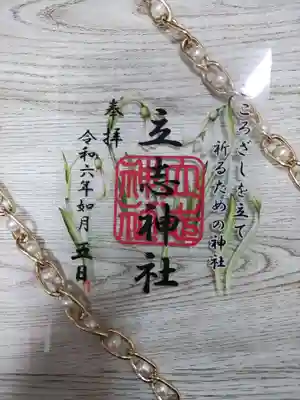 こころざしを立て
祈るための神社
立志神社
奉拝
令和六年如月五日
立志
神社